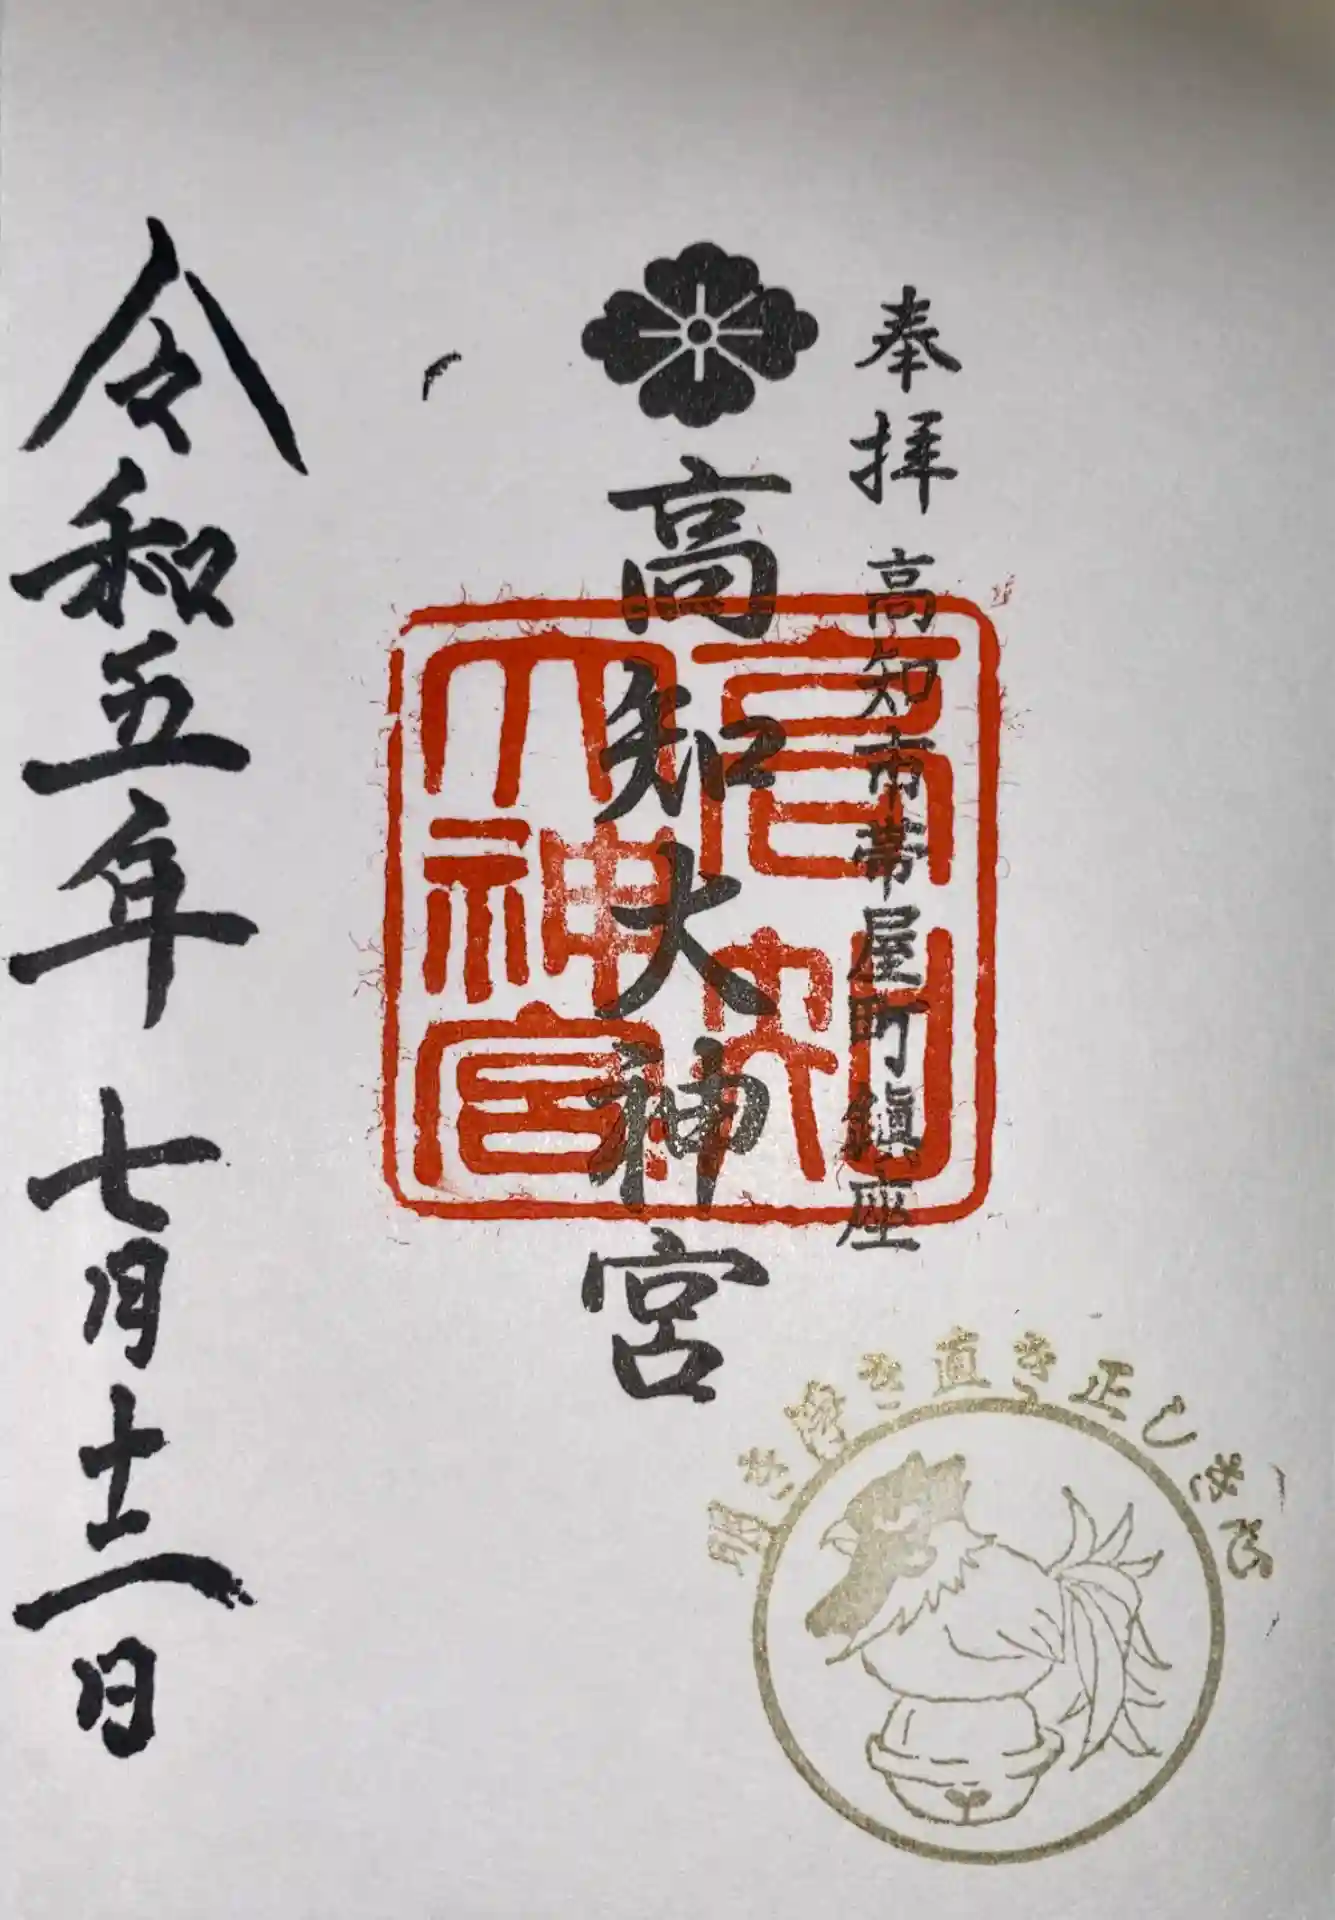 奉拝 高知市帯屋町鎮座
高知大神宮
高知
大神宮
令和五年 七月十二日
明き浄き直き正しき心